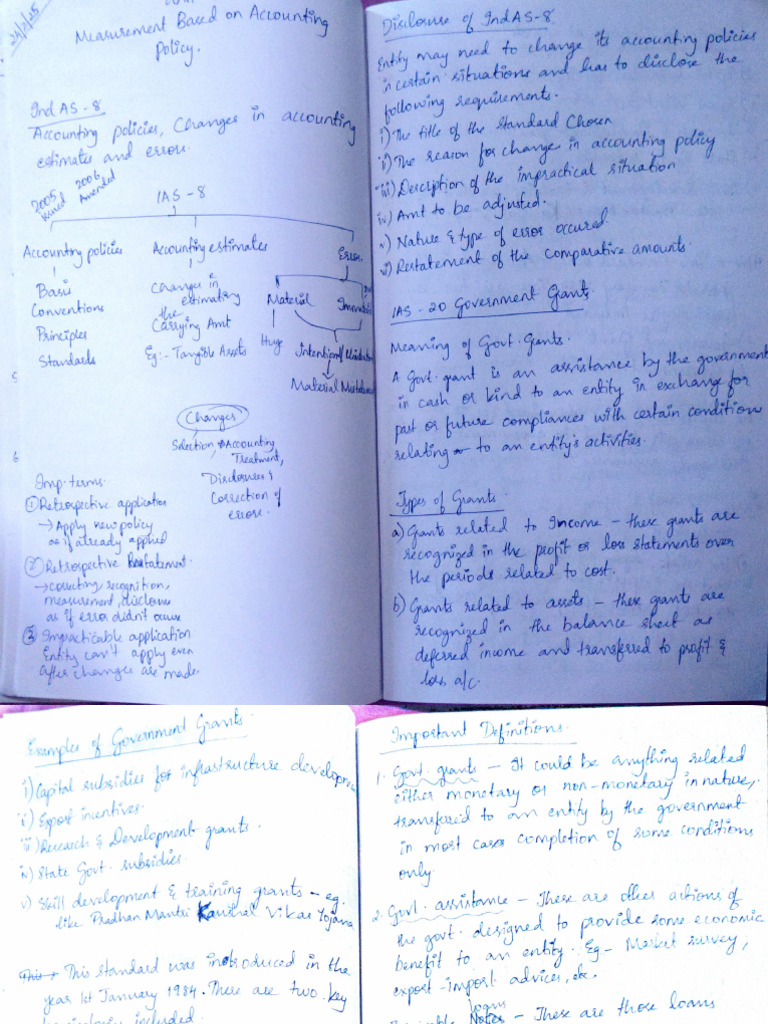 24/2/25
Measurement Based on Accounting
Policy.
Ind AS-8
Accounting policies, Changes in accounting
estimates and errors.
2005 issued 2006 Amended
IAS-8
Accounting policies Accounting estimates Errors
Basis
Conventions
Principles
Standards
Changes in
estimating
the
Carrying Amt
Eg:- Tangible Assets
Material
Huge
Material
Changes
Selection & Accounting
Treatment,
Disclosures &
Correction of
errors.
Imp. terms.
① Retrospective application
→ Apply new policy
as if already applied
② Retrospective Restatement.
→ correcting recognition,
measurement, disclosure
as if error didn't occur
③ Impracticable application
Entity can't apply even
after changes are made.
Disclosure of Ind AS-8
Entity may need to change its accounting policies
in certain situations and has to disclose the
following requirements.
i) The title of the Standard Chosen
ii) The reason for change in accounting policy
iii) Description of the impractical situation
iv) Amt to be adjusted.
v) Nature & type of error occured.
vi) Restatement of the comparative amounts.
IAS-20 Government Grants
Meaning of Govt. Grants.
A Govt. grant is an assistance by the government
in cash or kind to an entity in exchange for
past or future compliances with certain conditions
relating to an entity's activities.
Types of Grants
a) Grants related to Income - these grants are
recognized in the profit or loss statements over
the periods related to cost.
b) Grants related to assets - these grants are
recognized in the balance sheet as
deferred income and transferred to profit &
loss a/c.
Examples of Government Grants.
i) Capital subsidies for infrastructure
ii) Export incentives.
iii) Research & Development grants.
iv) State Govt. subsidies.
v) Skill development & training grants - eg.
like Pradhan Mantri Kaushal Vikas Yojana
This → This standard was introduced in the
year 1st January 1984. There are two key
included
Important Definitions.
1. Govt. grants - It could be anything related
either monetary or non-monetary in nature,
transferred to an entity by the government
in most cases completion of some conditions
only.
2. Govt. assistance - These are other actions of
the govt. designed to provide some economic
benefit to an entity. Eg - Market survey,
export-import advices, etc.
loans
Notes - These are those loans